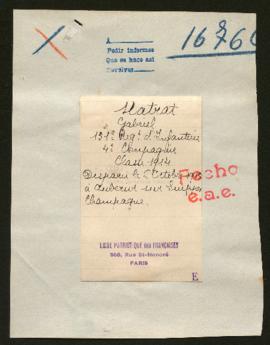 A
Pedir informes
Que se hace así
Matrat
Gabriel
131e Regt d'Infanterie
4e Compagnie
Classe 1914
Disparu le Octobre
à Auberive sur Suippes
Champagne.
Fecho
e.a.e.
LIGUE PATRIOTIQUE DES FRANÇAISES
368, Rue St-Honoré
PARIS
E